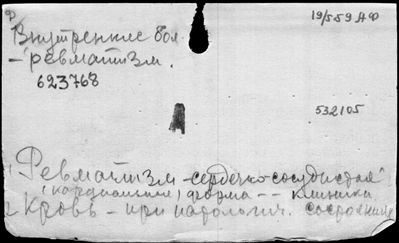 19/559 АФ
Внутренние бол
- ревматизм.
623768
532105
1 Ревматизм - сердечно-сосудистая
(кардиальная) форма -- клиника
2 Кровь - при патологич. состояние